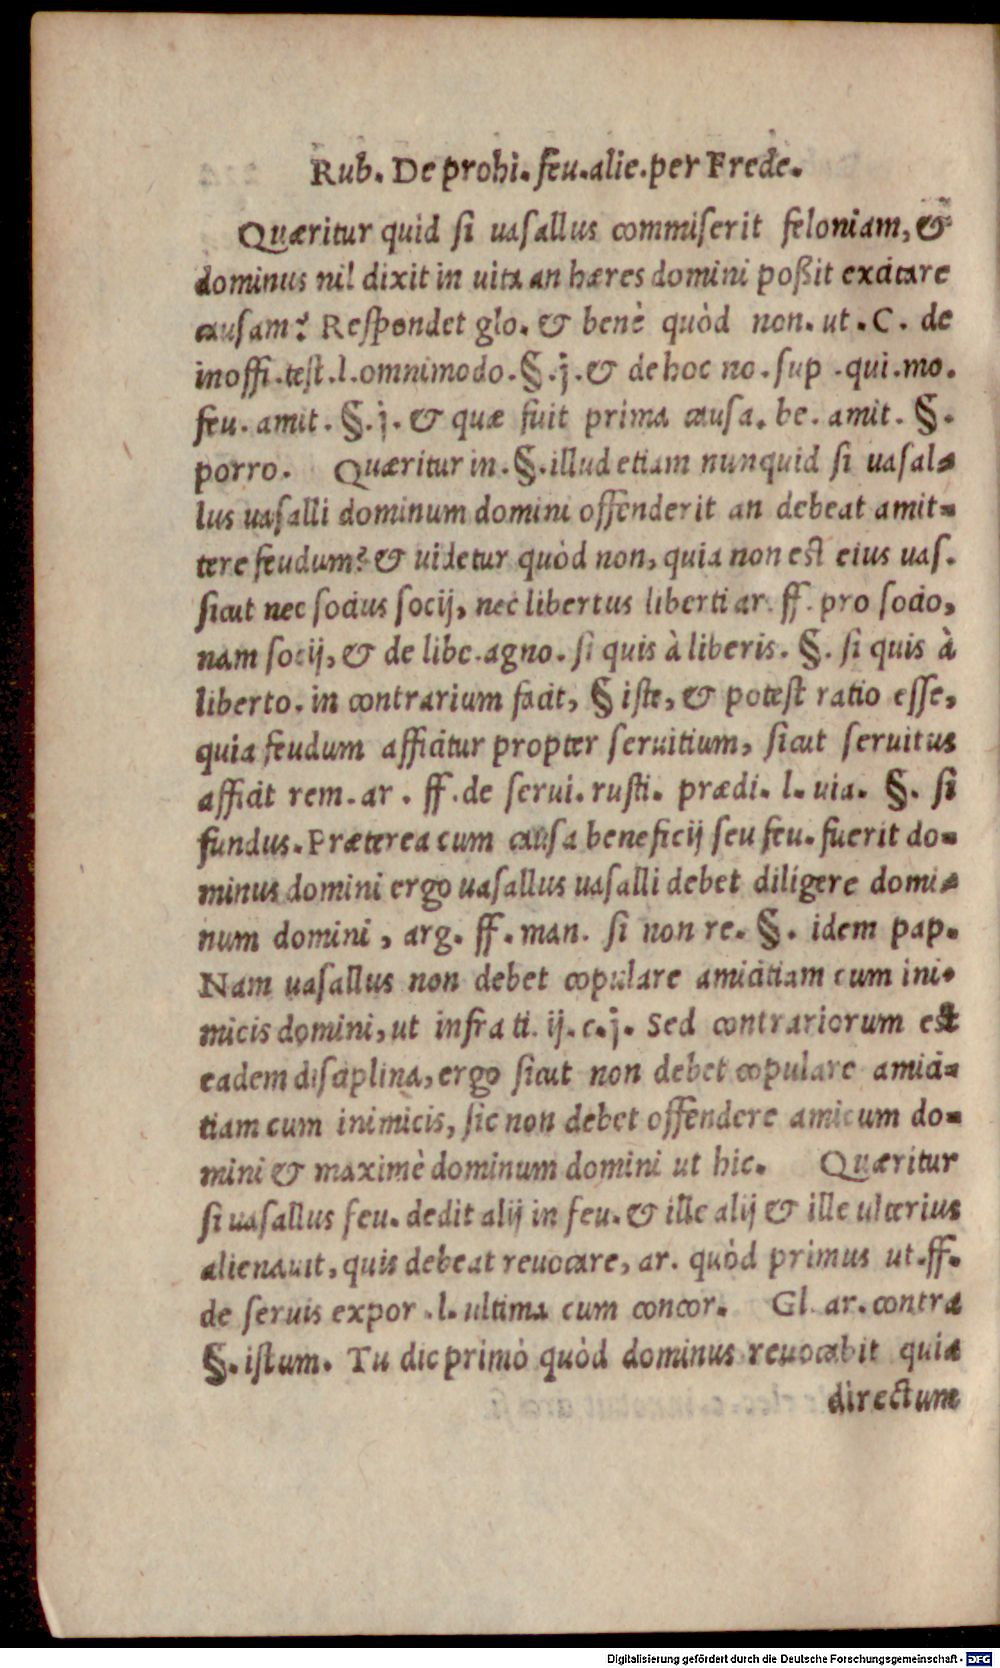 Rub. De prohi. feu. alie. per Frede.
Quæritur quid si uasallus commiserit feloniam, &
dominus nil dixit in uita an hæres domini poßit excitare
causam? Respondet glo. & benè quòd non. ut. C. de
inoffi. test. l. omnimodo. §. j. & de hoc no. sup. qui. mo.
feu. amit. §. j. & quæ fuit prima causa. be. amit. §.
porro. Quæritur in. §. illud etiam nunquid si uasal-
lus uasalli dominum domini offenderit an debeat amit-
tere feudum? & uidetur quòd non, quia non est eius uas.
sicut nec socius socij, nec libertus liberti ar. ff. pro socio,
nam socij, & de libe. agno. si quis à liberis. §. si quis à
liberto. in contrarium facit, § iste, & potest ratio esse,
quia feudum afficitur propter seruitium, sicut seruitus
afficit rem. ar. ff. de serui. rusti. prædi. l. uia. §. si
fundus. Præterea cum causa beneficij seu feu. fuerit do-
minus domini ergo uasallus uasalli debet diligere domi-
num domini, arg. ff. man. si non re. §. idem pap.
Nam uasallus non debet copulare amicitiam cum ini-
micis domini, ut infra ti. ij. c. j. Sed contrariorum est
eadem disciplina, ergo sicut non debet copulare amici-
tiam cum inimicis, sic non debet offendere amicum do-
mini & maximè dominum domini ut hic. Quæritur
si uasallus feu. dedit alij in feu. & ille alij & ille ulterius
alienauit, quis debeat reuocare, ar. quòd primus ut. ff.
de seruis expor. l. ultima cum concor. Gl. ar. contra
§. istum. Tu dic primò quòd dominus reuocabit quia
directum
Digitalisierung gefördert durch die Deutsche Forschungsgemeinschaft - DFG